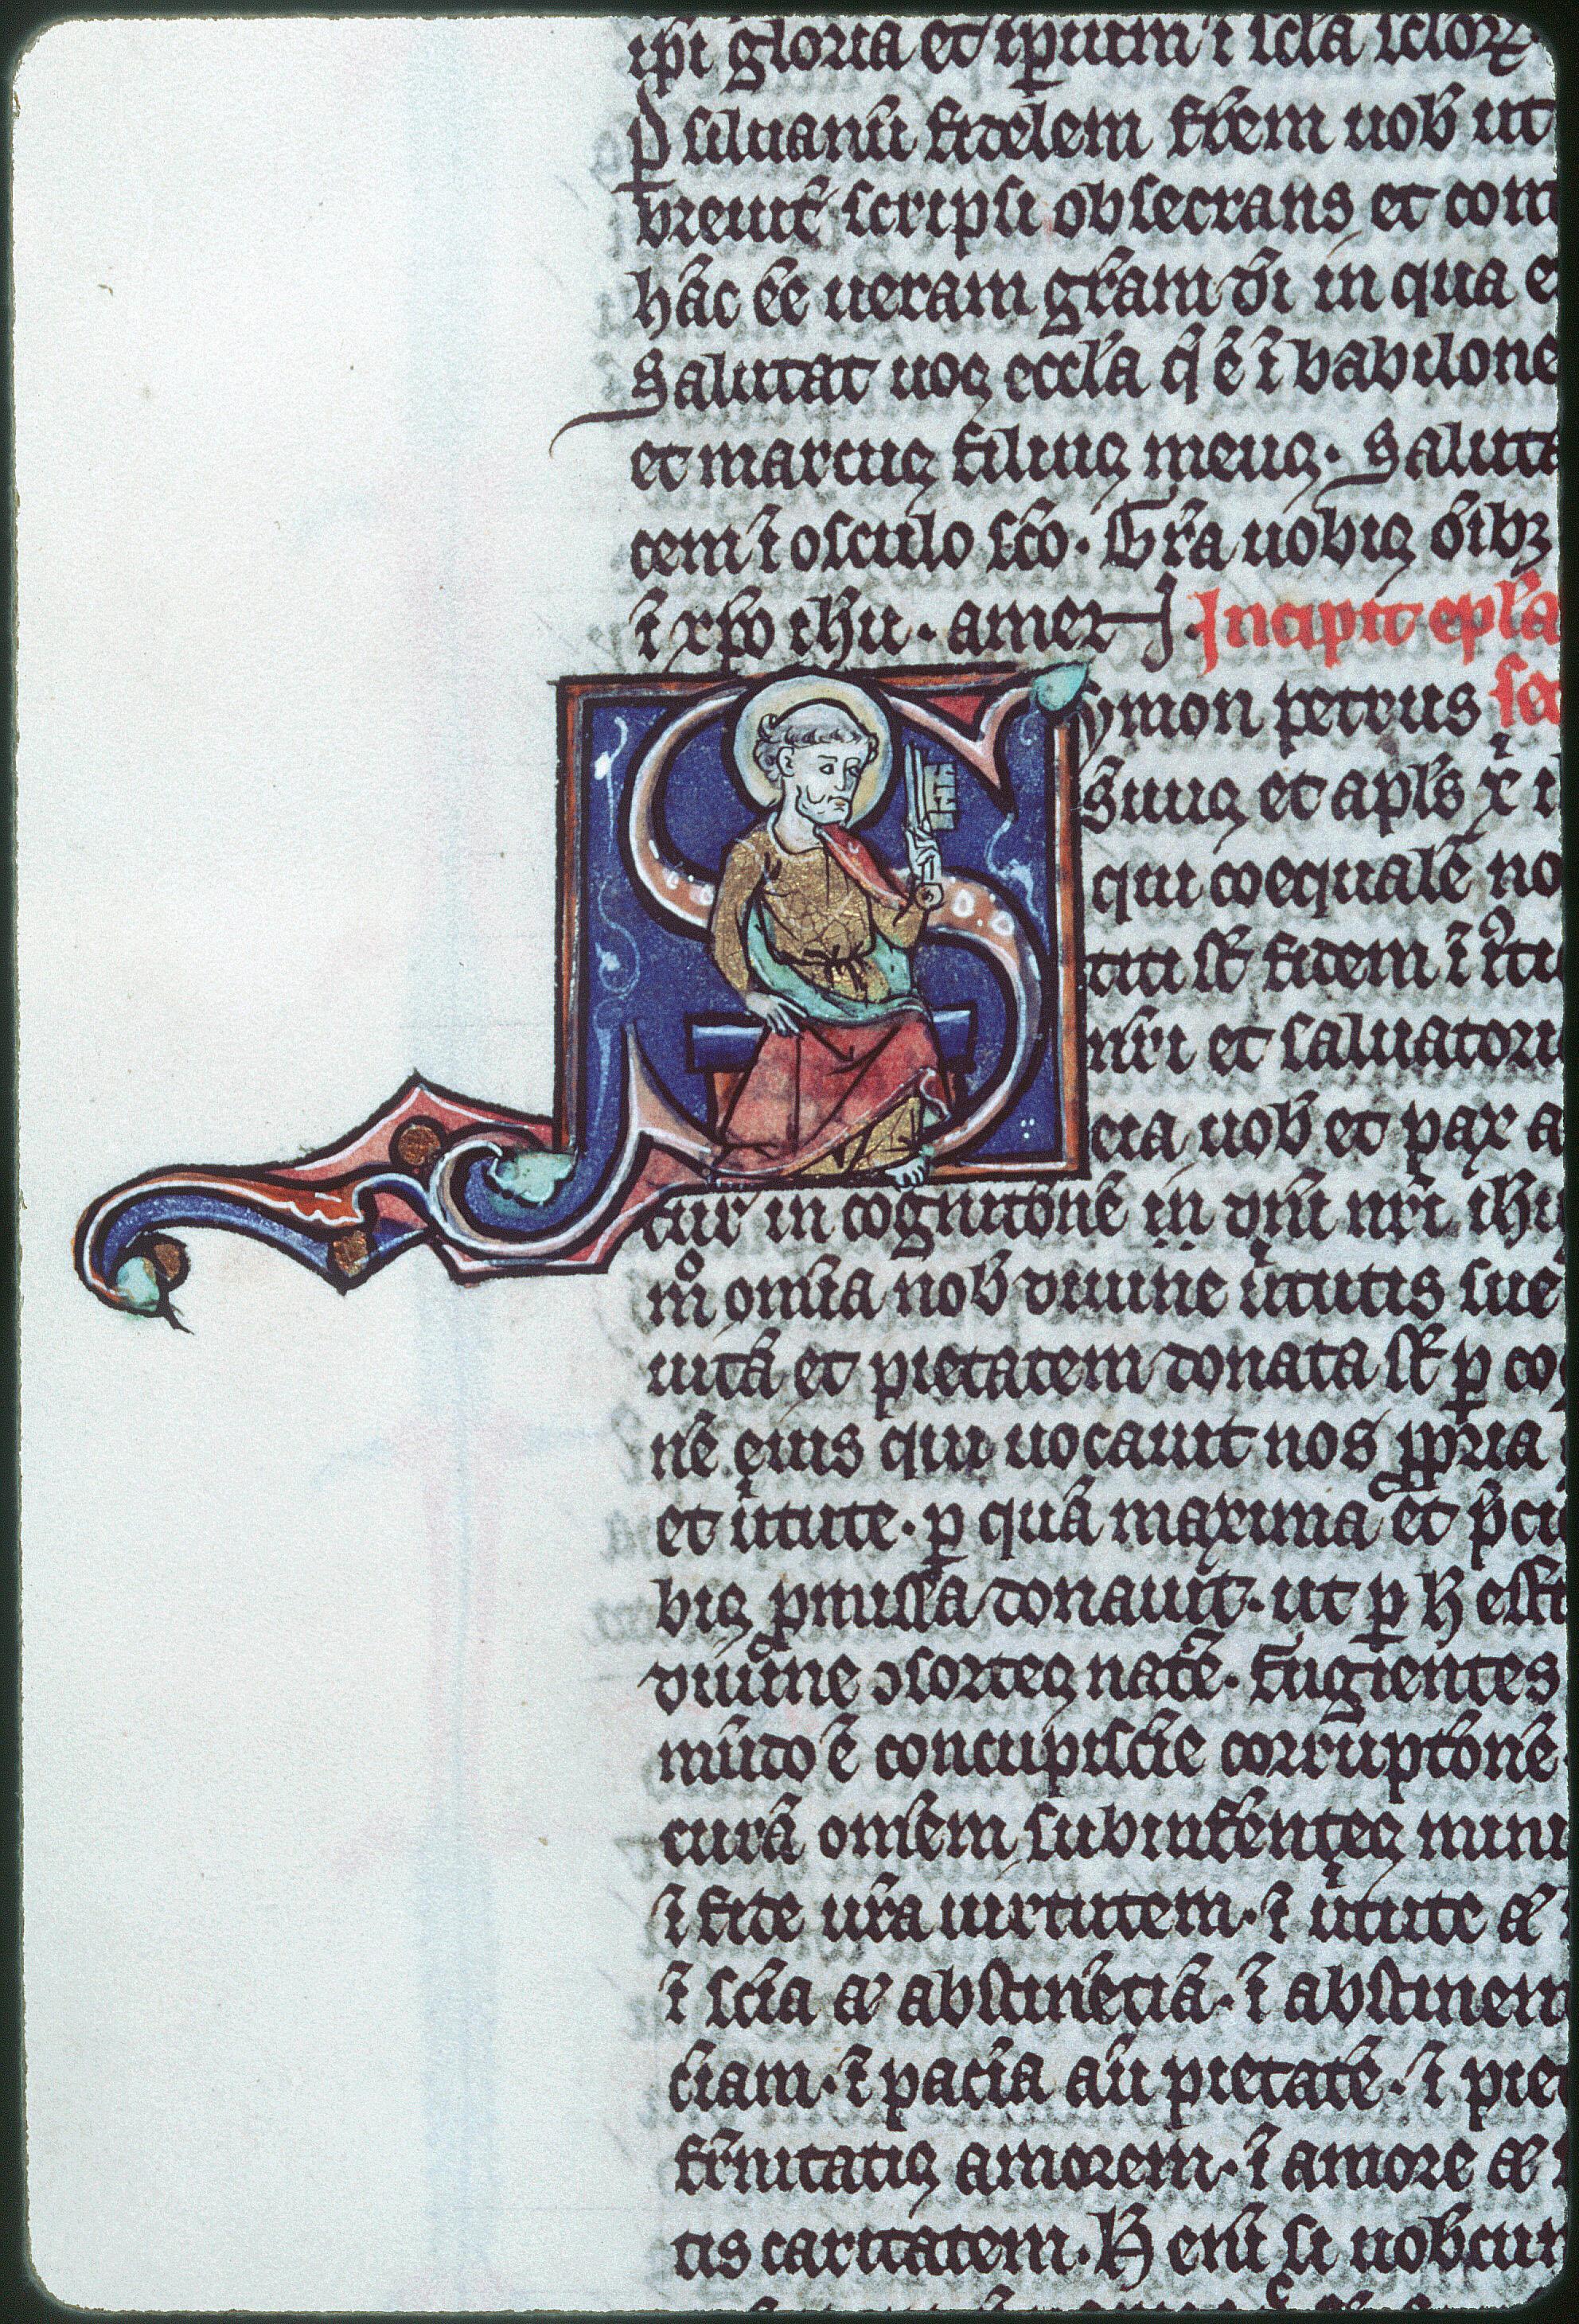 ip̄i gloria et ip̄ium ī scła scłoꝝ
ꝑ siluanū fidelem fr̄em uob̄ ut
breuit̄ scripsi obsecrans et con
hāc ēē ueram gr̄am dī in qua
Salutat uos eccła q̄ ē ī babilone
et marcus filius meus. Saluta
cem ī osculo sc̄o. Gr̄a uobis oīb;
ī xp̄o ih̄u. amen. Incipit epła
Symon petrus sec
s̄uus et apłs x̄ i
qui coequalē no
titi s̄t fidem ī
nr̄i et saluatori
cia uob̄ et pax a
tur in cognitōnē in dn̄i nr̄i ih̄u
mͦ omīa nob̄ diuine u̍tutis sue
uitā et pietatem donata s̄t ꝑ co
nē eius qui uocauit nos ꝓpria
et u̍tute. ꝑ quā maxima et p̄ci
bis ꝓmissa donauit. ut ꝑ h̄
diuine ꝯsortes nat̄e. fugientes
mūdo ē concupiscīe corruptōnē
curā omēm subinf̄entes mini
ī fide ur̄a uirtutem. ī u̍tute
ī scīa abstinētiā. ī abstinen
ciam. ī pacīa aū pietatē. ī pie
fr̄nitatis amorem. ī amore
tis caritatem. H̄ enī si uob̄cu